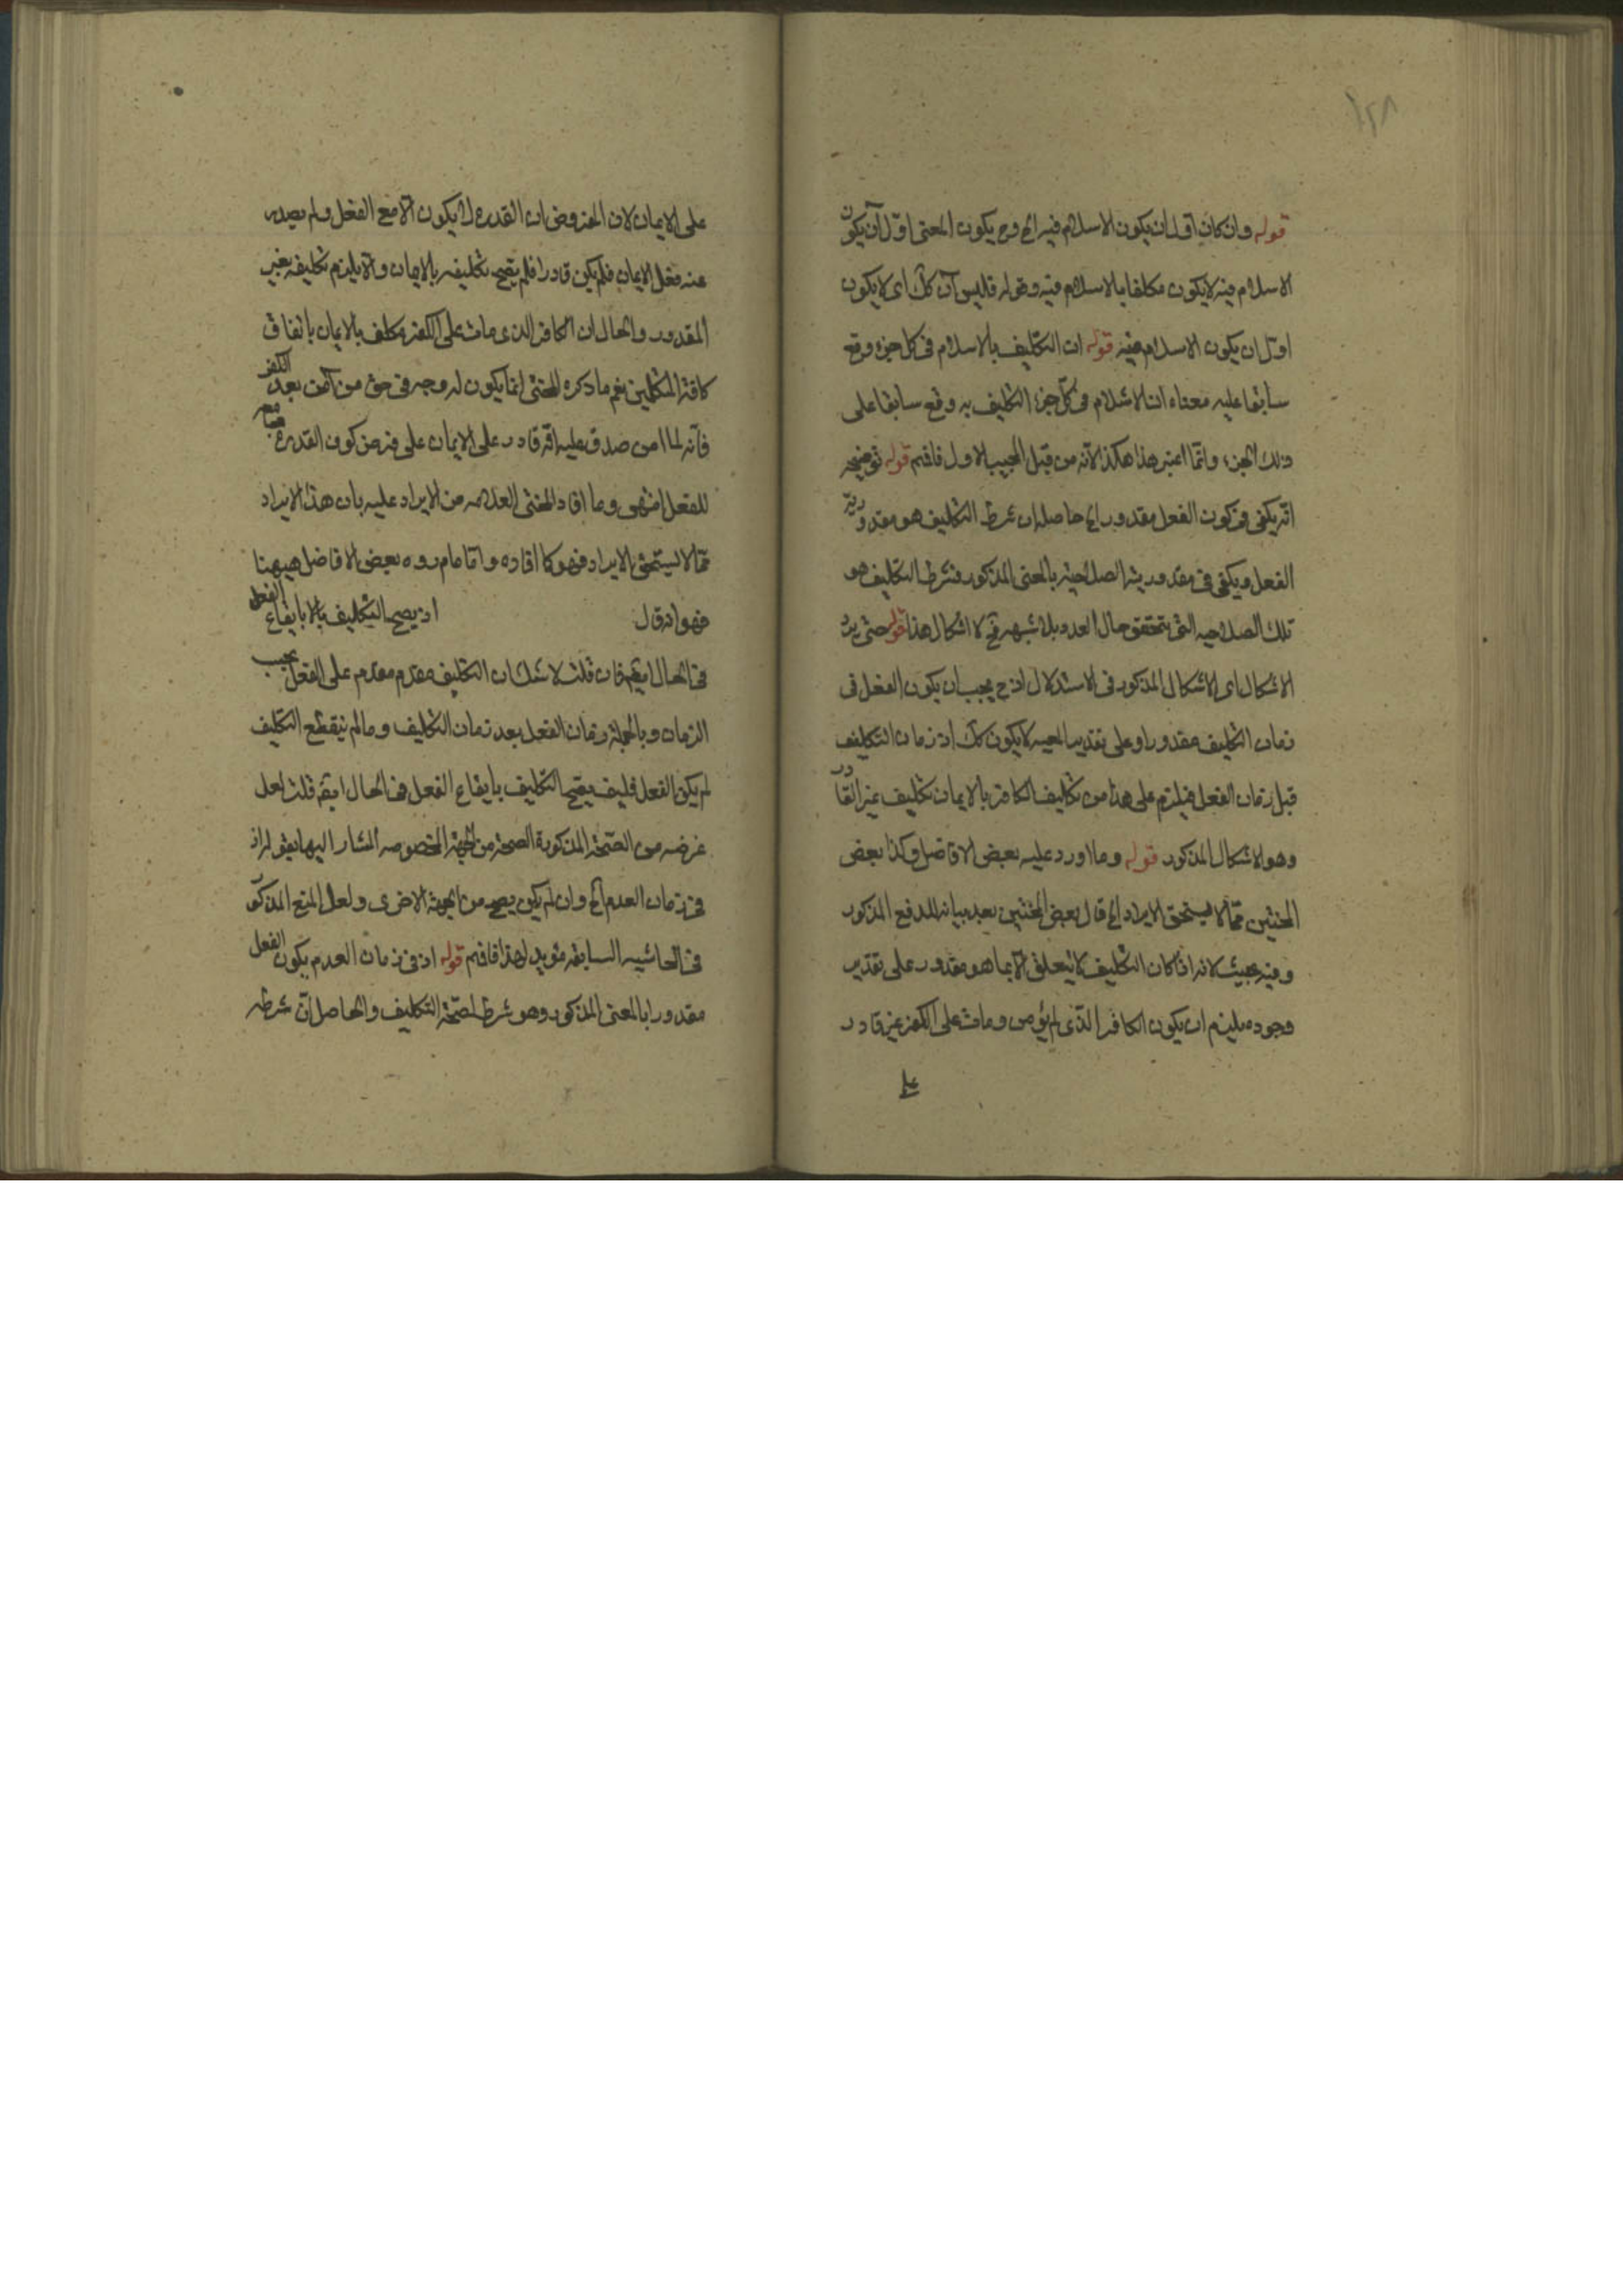 قوله وان كان اول ان يكون الاسلام فيه الخ وح يكون المعنى اول آن يكون
الاسلام فيه لا يكون مكلفا بالاسلام فيه وقوله فليس آن كك اى لا يكون
اول ان يكون الاسلام فيه قوله ان التكليف بالاسلام فى كل جزء وقع
سابقا عليه معناه ان الاسلام فى كل جزء التكليف به وقع سابقا على
ذلك الجزء وانما اعتبر هذا هكذا لانه من قبل المجيب الاول فافهم قوله توضيحه
انه يكفى فى كون الفعل مقدورا الخ حاصله ان شرط التكليف هو مقدورية
الفعل ويكفى فى مقدوريته الصلاحية بالمعنى المذكور فشرط التكليف هو
تلك الصلاحيه التى يتحقق حال العدم بلا شبهة فح لا اشكال هذا قوله حتى يرد
الاشكال اى الاشكال المذكور فى الاستدلال اذ ح يجب ان يكون الفعل فى
زمان التكليف مقدورا وعلى تقدير المعيه لا يكون كك اذ زمان التكليف
قبل زمان الفعل فيلزم على هذا من تكليف الكافر بالايمان تكليف غير القادر
وهو الاشكال المذكور قوله وما اورد عليه بعض الافاضل وكذا بعض
المحشين مما لا يستحق الايراد الخ قال بعض المحشين بعد بيانه للدفع المذكور
وفيه بحيث لانه اذا كان التكليف لا يتعلق الا بما هو مقدور على تقدير
وجوده يلزم ان يكون الكافر الذى لم يؤمن ومات على الكفر غير قادر
على
على الايمان لان المفروض ان القدرة لا يكون الا مع الفعل ولم يصدر
عنه فعل الايمان فلم يكن قادرا فلم يصح تكليفه بالايمان والا يلزم تكليفه بغير
المقدور والحال ان الكافر الذى مات على الكفر مكلف بالايمان باتفاق
كافة المتكلمين نعم ما ذكره المحشى انما يكون له وجه فى حق من آمن بعد الكفر
فانه لما امن صدق عليه انه قادر على الايمان على فرض كون القدرة مع
للفعل انتهى وما افاد المحشى العلامه من الايراد عليه بان هذا الايراد
مما لا يستحق الايراد فهو كما افاده واما ما اورده بعض الافاضل هيهنا
فهو انه قال اذ يصح التكليف بالا بايقاع الفعل
فى الحال ايضا فان قلت لا شك ان التكليف مقدم مقدم على الفعل بحسب
الزمان وبالجملة زمان الفعل بعد زمان التكليف وما لم ينقطع التكليف
لم يكن الفعل فكيف يصح التكليف بايقاع الفعل فى الحال ايضا قلت لعل
غرضه من الصحة المذكورة الصحة من الجهة المخصوصه المشار اليها بقوله اذ
فى زمان العدم الخ وان لم يكن يصح من الجهة الاخرى ولعل المنع المذكور
فى الحاشيه السابقه مؤيد لهذا فافهم قوله اذ فى زمان العدم يكون الفعل
مقدورا بالمعنى المذكور وهو شرط لصحة التكليف والحاصل ان شرطه